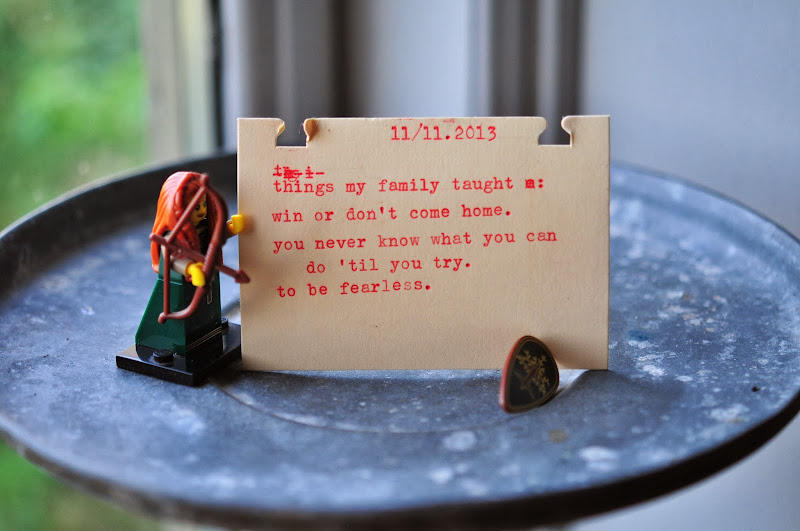 11/11.2013
things my family taught m:
win or don't come home.
you never know what you can
do 'til you try.
to be fearless.